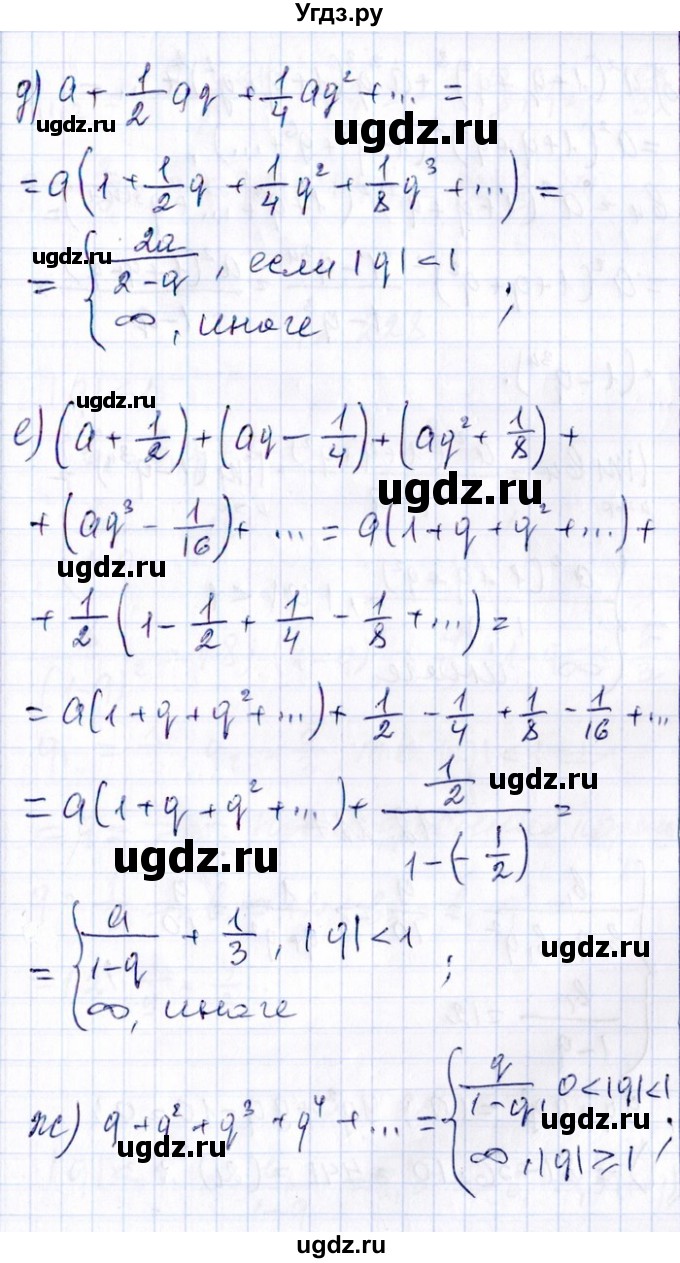 Угдз.ру
д) a + 1/2 aq + 1/4 aq² + ... =
ugdz.ru ugdz.ru
= a(1 + 1/2 q + 1/4 q² + 1/8 q³ + ...) =
ugdz.ru
= { 2a/(2-q), если |q| < 1
∞, иначе ;
ugdz.ru
е) (a + 1/2) + (aq - 1/4) + (aq² + 1/8) +
ugdz.ru
+ (aq³ - 1/16) + ... = a(1 + q + q² + ...) +
ugdz.ru
+ 1/2 (1 - 1/2 + 1/4 - 1/8 + ...) =
= a(1 + q + q² + ...) + 1/2 - 1/4 + 1/8 - 1/16 + ...
= a(1 + q + q² + ...) + (1/2)/(1-(-1/2)) =
ugdz.ru
ugdz.ru
= { a/(1-q) + 1/3, |q| < 1
∞, иначе ;
ugdz.ru
ж) q + q² + q³ + q⁴ + ... = { q/(1-q), 0<|q|<1
∞, |q| ≥ 1 ;
ugdz.ru
ugdz.ru
ugdz.ru